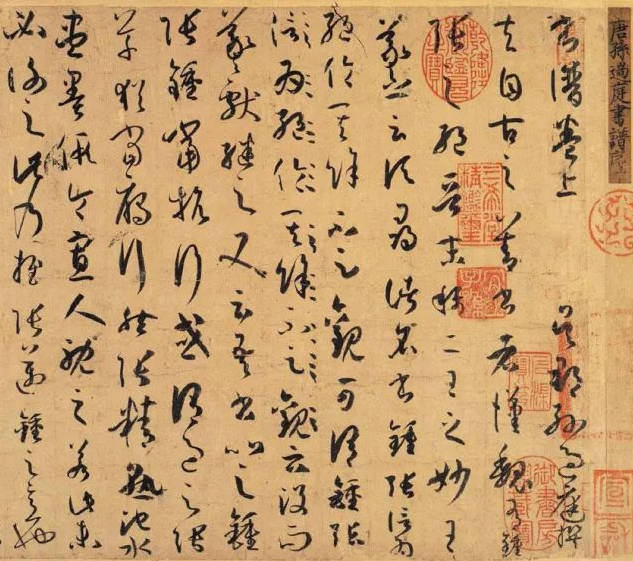 唐孫過庭書譜序
書譜卷上 吳郡孫過庭撰
夫自古之善書者漢魏有鍾
張之絕晉末稱二王之妙王
羲之云頃尋諸名書鍾張信為
絕倫其餘不足觀可謂鍾張
信為絕倫其餘不足觀云沒而
羲獻繼之又云吾書比之鍾
張鍾當抗行或謂過之張
草猶當鴈行然張精熟池水
盡墨假令寡人耽之若此未
必謝之此乃推張邁鍾之意也
三希堂精鑑璽
宜子孫